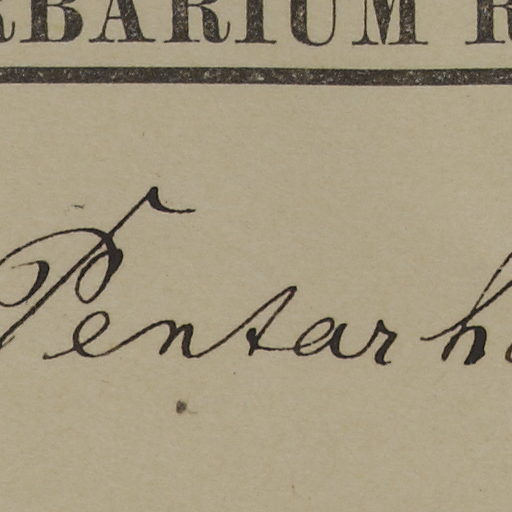 RBARIUM R
Pentarh